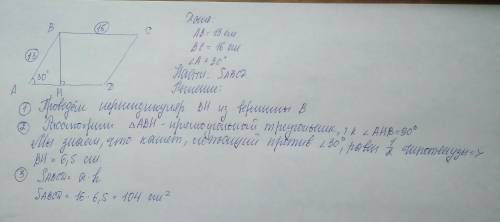 Дано:
AB = 13 см
BC = 16 см
∠A = 30°
Найти: SABCD
Решение:
B 16 C
13
A 30° H D
① Проведём перпендикуляр BH из вершины B
② Рассмотрим △ABH - прямоугольный треугольник, т.к ∠AHB = 90°
Мы знаем, что катет, лежащий против ∠30°, равен 1/2 гипотенузы =>
BH = 6,5 см.
③ SABCD = a · h
SABCD = 16 · 6,5 = 104 см²